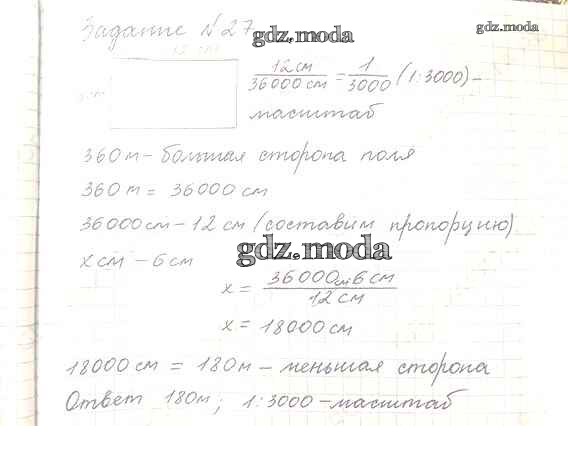 Задание №27
gdz.moda
gdz.moda
12 см
12 см / 36000 см = 1 / 3000 (1:3000) –
масштаб
360 м – большая сторона поля
360 м = 36000 см
36000 см – 12 см (составим пропорцию)
gdz.moda
x см – 6 см
x = 36000 см 6 см / 12 см
x = 18000 см
18000 см = 180 м – меньшая сторона
Ответ 180м; 1:3000 – масштаб